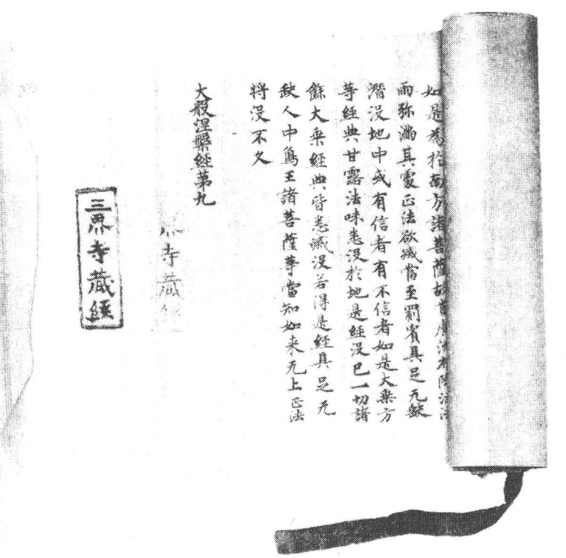 如是為於南方諸菩薩故當廣流布降注法
雨弥滿其處正法欲滅當至罽賓具足无缺
潛没地中或有信者有不信者如是大乘方
等經典甘露法味悉没於地是經没已一切諸
餘大乘經典皆悉滅没若得是經具足无
缺人中象王諸菩薩等當知如来无上正法
将没不久
大般涅槃經第九
界寺藏經
三界寺藏經